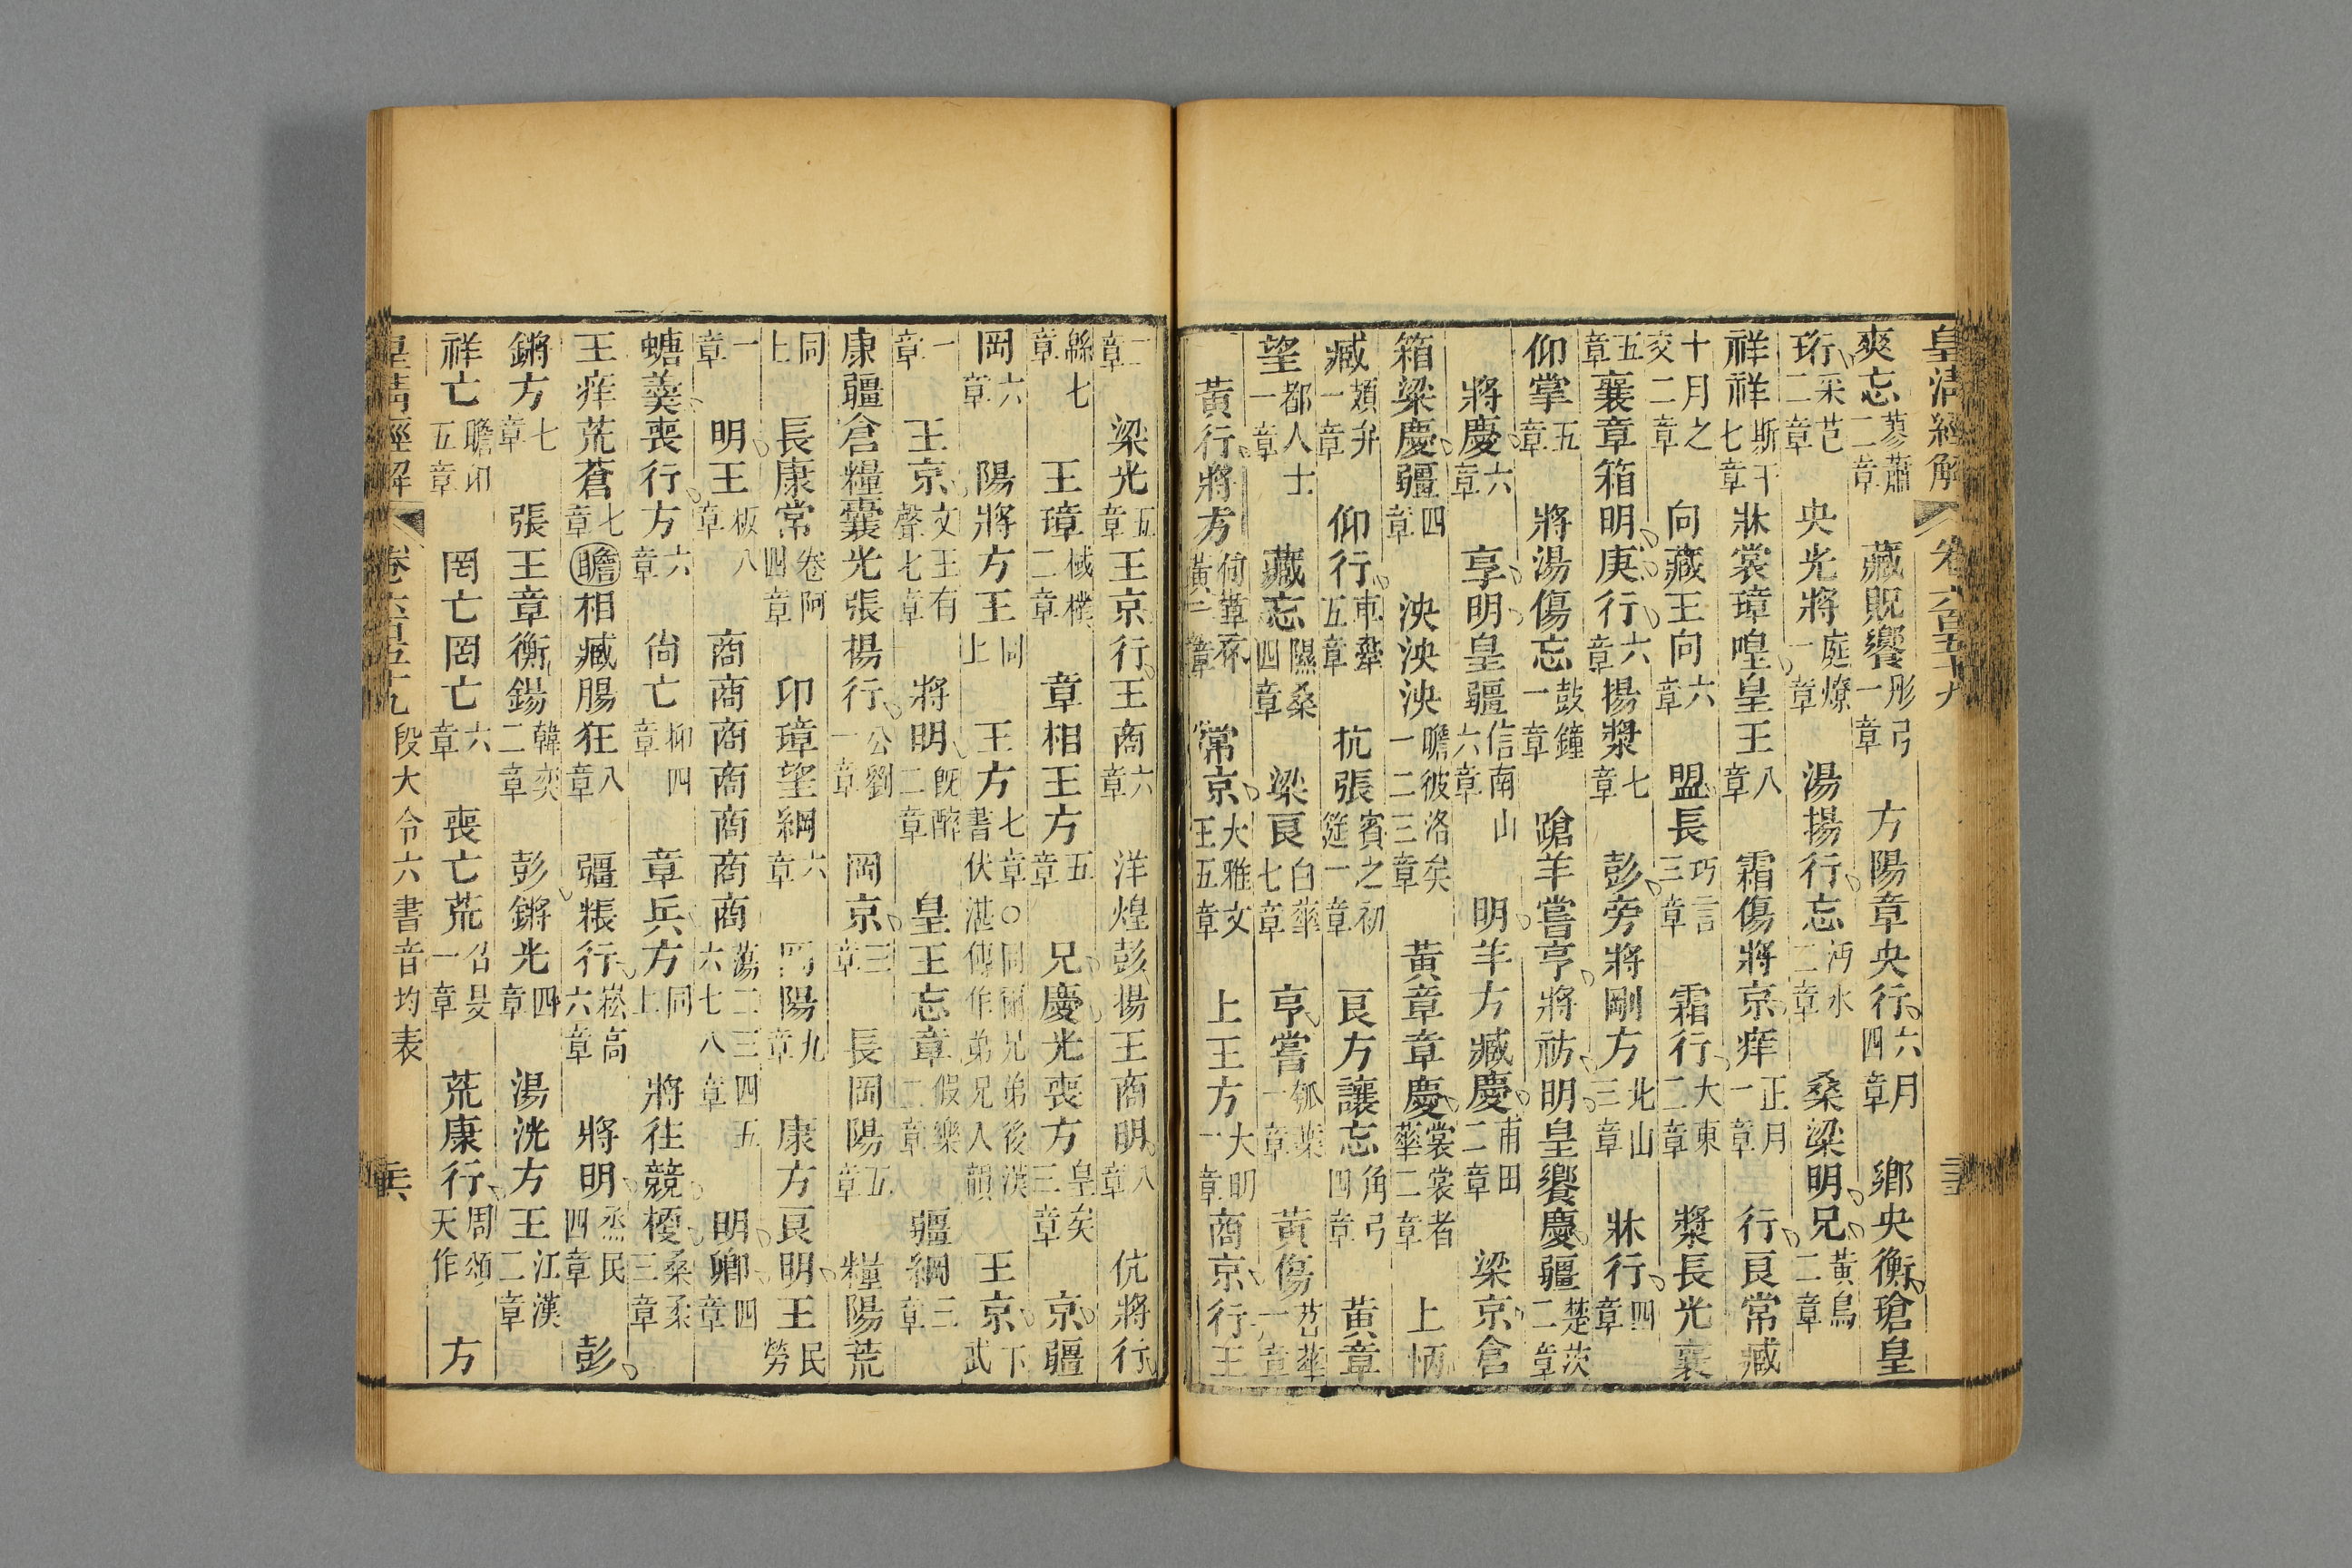 皇清經解 卷六百五十九
爽忘蓼蕭二章 藏貺饗彤弓一章 方陽章央行六月四章 鄉央衡瑲皇
珩采芑二章 央光將庭燎一章 湯揚行忘沔水二章 桑梁明兄黃鳥二章
祥祥斯干七章 牀裳璋喤皇王八章 霜傷將京痒正月一章 行良常臧
十月之交二章 向藏王向六章 盟長巧言三章 霜行大東二章 漿長光襄
五章襄章箱明庚行六章 揚漿七章 彭旁將剛方北山三章 牀行四章
仰掌五章 將湯傷忘鼓鐘一章 蹌羊嘗亨將祊明皇饗慶疆楚茨二章
將慶六章 享明皇疆信南山六章 明羊方臧慶甫田二章 梁京倉
箱梁慶疆四章 泱泱泱瞻彼洛矣一二三章 黃章章慶裳裳者華二章 上怲
臧頍弁一章 仰行車舝五章 抗張賓之初筵一章 良方讓忘角弓四章 黃章
望都人士一章 藏忘隰桑四章 梁良白華七章 亨嘗瓠葉一章 黃傷苕華一章
黃行將方何草不黃一章 常京大雅文王五章 上王方大明一章 商京行王
二章 梁光五章 王京行王商六章 洋煌彭揚王商明八章 伉將行
緜七章 王璋棫樸二章 章相王方五章 兄慶光喪方皇矣三章 京疆
岡六章 陽將方王同上 王方七章○同爾兄弟後漢書伏湛傳作弟兄入韻 王京下武
一章 王京文王有聲七章 將明既醉二章 皇王忘章假樂二章 疆綱三章
康疆倉糧囊光張揚行公劉一章 岡京三章 長岡陽五章 糧陽荒
同上 長康常卷阿四章 卬璋望綱六章 岡陽九章 康方良明王民勞
一章 明王板八章 商商商商商商商蕩二三四五六七八章 明卿四章
螗羹喪行方六章 尚亡抑四章 章兵方同上 將往競梗桑柔三章
王痒荒蒼七章 瞻相臧腸狂八章 疆粻行崧高六章 將明烝民四章 彭
鏘方七章 張王章衡鍚韓奕二章 彭鏘光四章 湯洸方王江漢二章
祥亡瞻卬五章 罔亡罔亡六章 喪亡荒召旻一章 荒康行周頌天作 方
皇清經解 卷六百五十九 段大令六書音均表